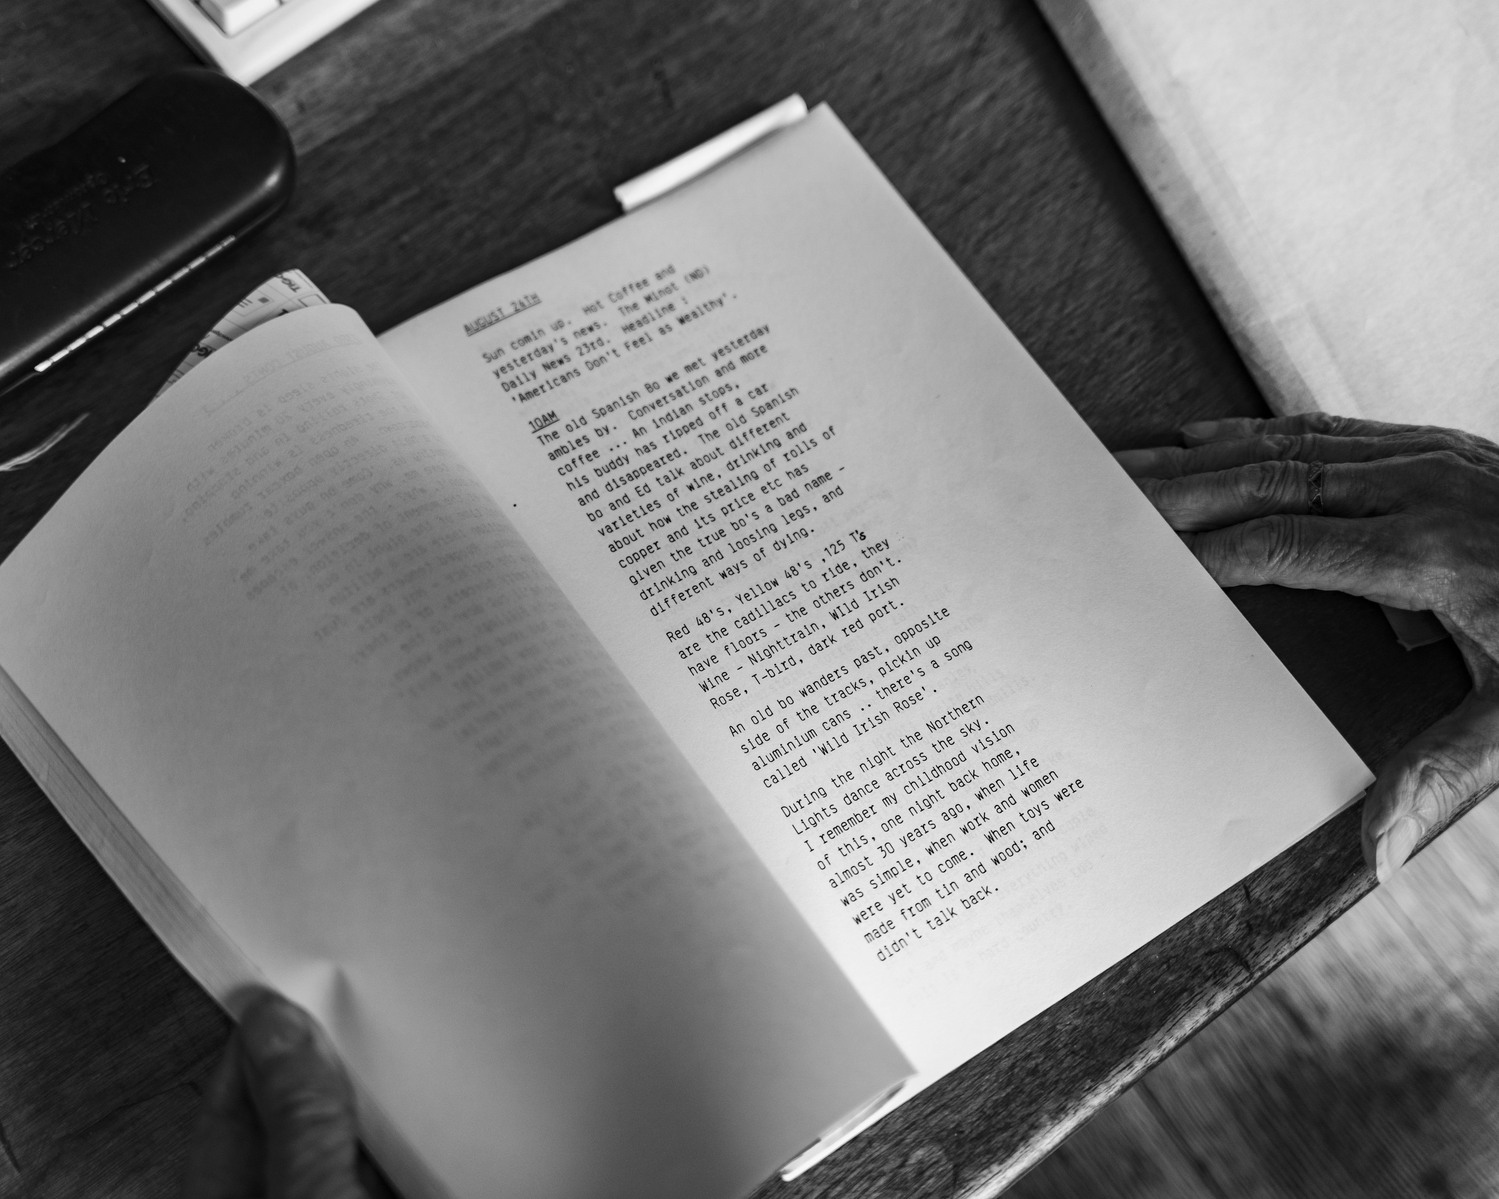 AUGUST 24TH
Sun comin up. Hot Coffee and
yesterday's news. The Minot (ND)
Daily News 23rd. Headline :
'Americans Don't Feel as Wealthy'.
10AM
The old Spanish Bo we met yesterday
ambles by. Conversation and more
coffee ... An indian stops,
his buddy has ripped off a car
and disappeared. The old Spanish
bo and Ed talk about different
varieties of wine, drinking and
about how the stealing of rolls of
copper and its price etc has
given the true bo's a bad name -
drinking and loosing legs, and
different ways of dying.
Red 48's, Yellow 48's ,125 T's
are the cadillacs to ride, they
have floors - the others don't.
Wine - Nighttrain, WIld Irish
Rose, T-bird, dark red port.
An old bo wanders past, opposite
side of the tracks, pickin up
aluminium cans .. there's a song
called 'Wild Irish Rose'.
During the night the Northern
Lights dance across the sky.
I remember my childhood vision
of this, one night back home,
almost 30 years ago, when life
was simple, when work and women
were yet to come. When toys were
made from tin and wood; and
didn't talk back.